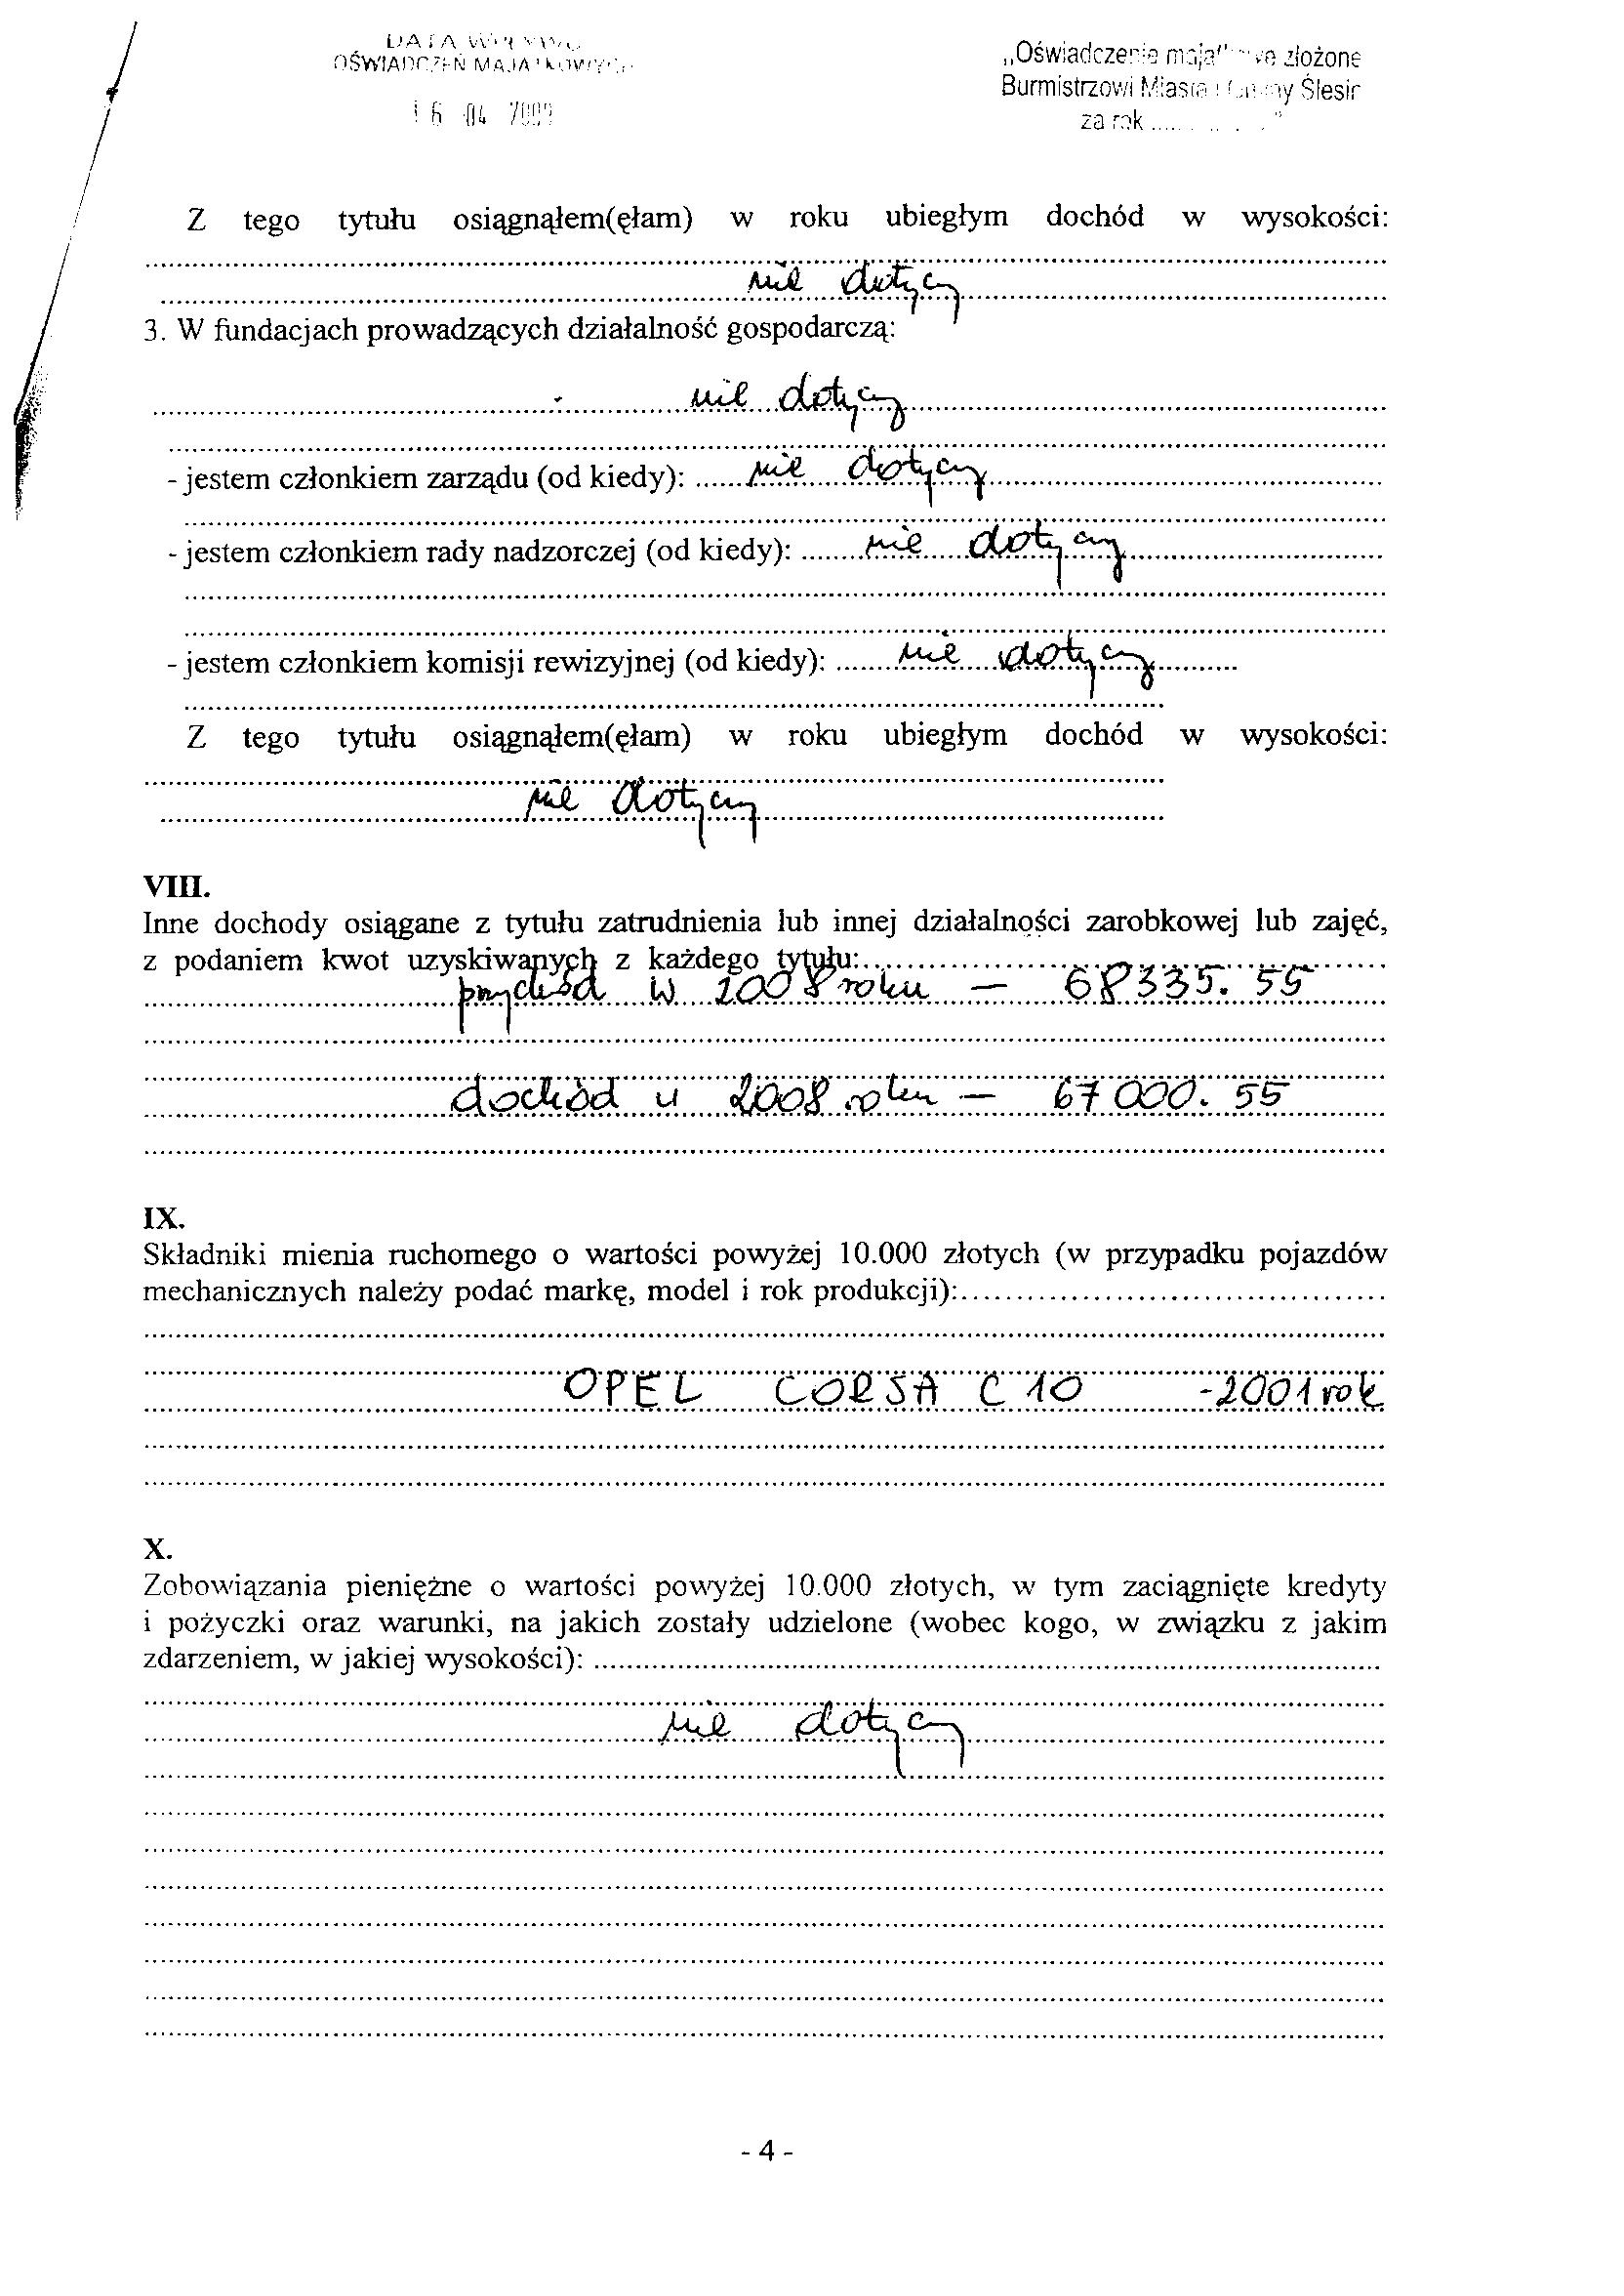 DATA WPŁYWU
OŚWIADCZEŃ MAJĄTKOWYCH
16 -04- 2009
„Oświadczenie majątkowe złożone
Burmistrzowi Miasta i Gminy Ślesin
za rok ..... "
Z tego tytułu osiągnąłem(ęłam) w roku ubiegłym dochód w wysokości:
nie dotyczy
3. W fundacjach prowadzących działalność gospodarczą:
nie dotyczy
- jestem członkiem zarządu (od kiedy): nie dotyczy
- jestem członkiem rady nadzorczej (od kiedy): nie dotyczy
- jestem członkiem komisji rewizyjnej (od kiedy): nie dotyczy
Z tego tytułu osiągnąłem(ęłam) w roku ubiegłym dochód w wysokości:
nie dotyczy
VIII.
Inne dochody osiągane z tytułu zatrudnienia lub innej działalności zarobkowej lub zajęć,
z podaniem kwot uzyskiwanych z każdego tytułu:
przychód w 2008 roku — 68335.55
dochód w 2008 roku — 67000.55
IX.
Składniki mienia ruchomego o wartości powyżej 10.000 złotych (w przypadku pojazdów
mechanicznych należy podać markę, model i rok produkcji):
OPEL CORSA C 10 -2001 rok
X.
Zobowiązania pieniężne o wartości powyżej 10.000 złotych, w tym zaciągnięte kredyty
i pożyczki oraz warunki, na jakich zostały udzielone (wobec kogo, w związku z jakim
zdarzeniem, w jakiej wysokości):
nie dotyczy
- 4 -